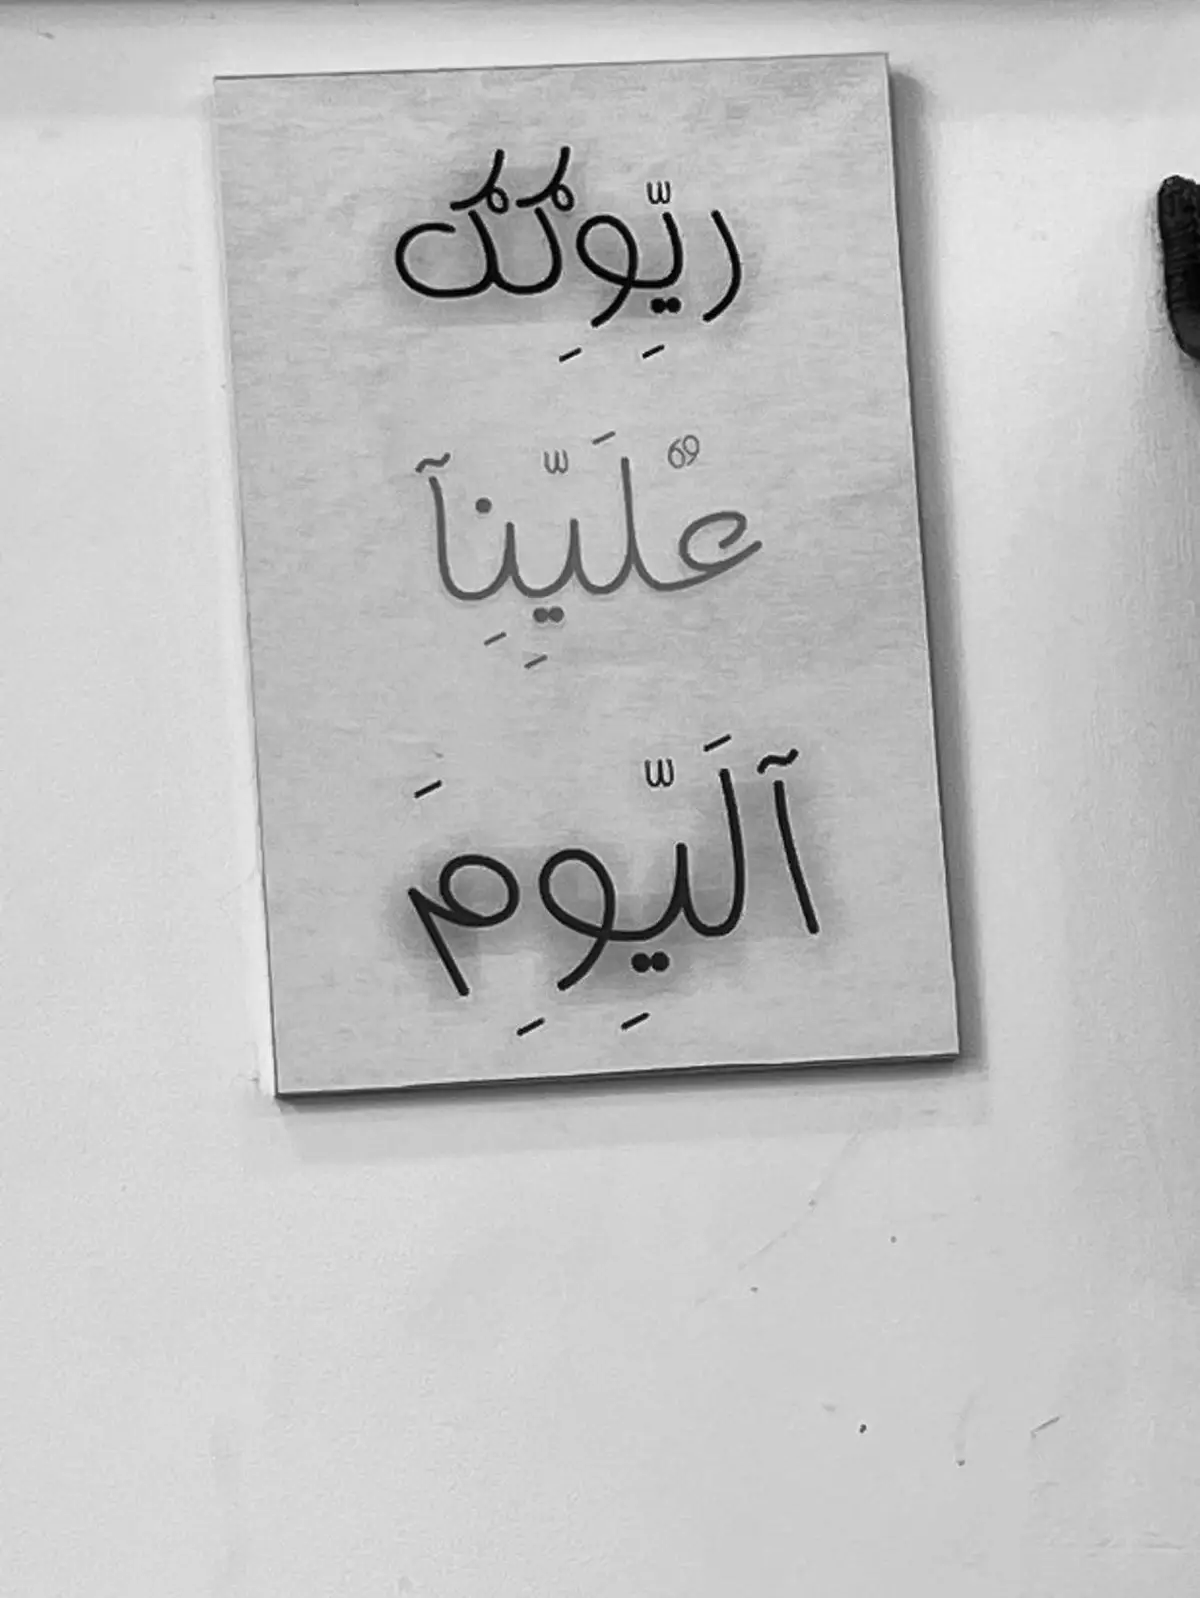 رِيِّوِكَك
عْلَيِّنِآ
آلَيِّوِمَ